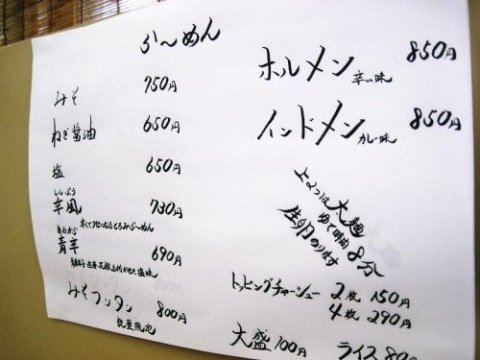 らーめん
みそ 750円
ねぎ醤油 650円
塩 650円
しんぷう
辛風 730円
青辛 690円
みそワンタン 800円
ホルメン 辛い味 850円
インドメン カレー味 850円
上2つは太麺
ゆで時間8分
生卵のります
トッピングチャーシュー 2枚 150円
4枚 290円
大盛 100円
ライス 80